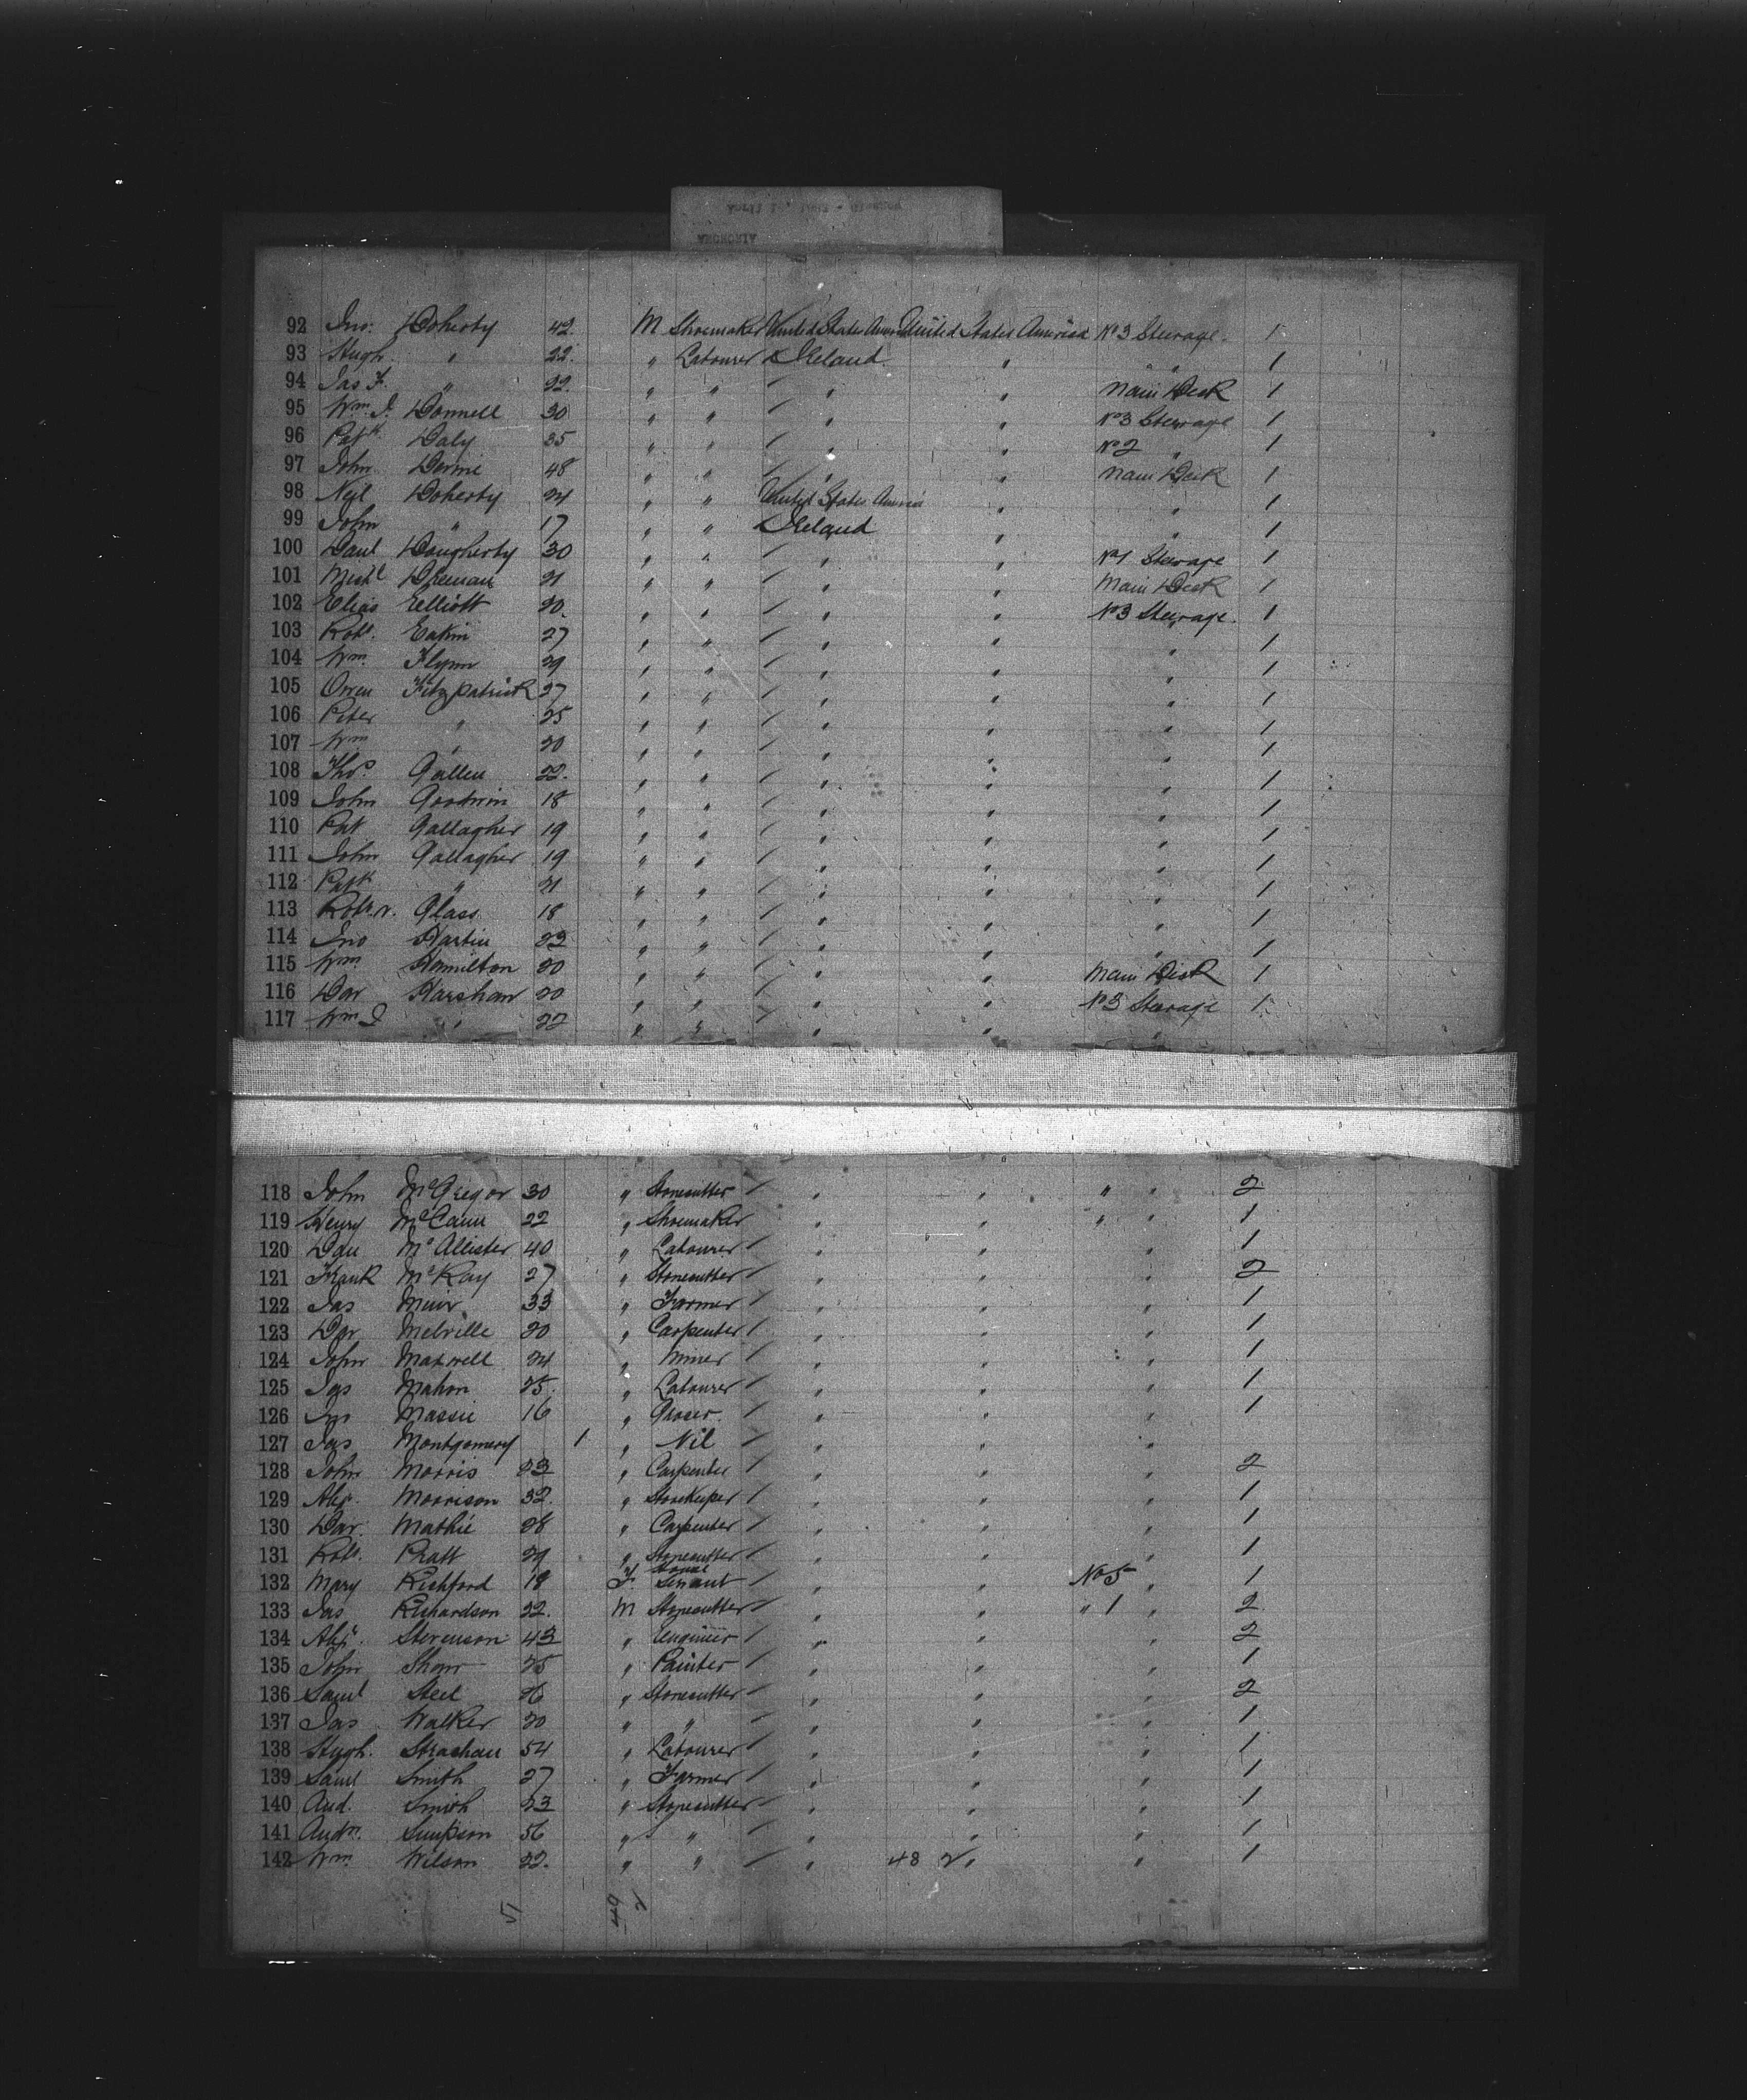 92 Jno: Doherty 42. M Shoemaker United States America United States America No 3 Steerage. 1
93 Hugh " 22. " Labourer Ireland " " " 1
94 Jas F. " 22. " " " " Main Deck 1
95 Wm. J. Donnell 30 " " " " No 3 Steerage 1
96 Patk Daly 35 " " " " No 2 " 1
97 John 48 " " " " Main Deck 1
98 Neil Doherty 24 " " United States America " " 1
99 John " 17 " " Ireland " " 1
100 Danl Dougherty 30 " " " " No 1 Steerage 1
101 Michl 21 " " " " Main Deck 1
102 Elias Elliott 20. " " " " No 3 Steerage. 1
103 Robt. Eakin 27 " " " " " 1
104 Wm. Flynn 29 " " " " " 1
105 Owen Fitzpatrick 27 " " " " " 1
106 Peter " 25 " " " " " 1
107 Wm " 20 " " " " " 1
108 Thos. Gallen 22. " " " " " 1
109 John Goodwin 18 " " " " " 1
110 Pat Gallagher 19 " " " " " 1
111 John Gallagher 19 " " " " " 1
112 Patk " 21 " " " " " 1
113 Robt. Glass 18 " " " " " 1
114 Jno 23 " " " " " 1
115 Wm. Hamilton 20 " " " " Main Deck 1
116 Dav Harshaw 20 " " " " No 3 Steerage 1
117 Wm J " 22 " " " " "
118 John McGregor 30 " Stonecutter " " " " 2
119 Henry McCann 22 " Shoemaker " " " " 1
120 Dan McAllister 40 " Labourer " " " 1
121 Frank McKay 27 " Stonecutter " " " 2
122 Jas Muir 33 " Farmer " " " 1
123 Dav Melville 20 " Carpenter " " " 1
124 John Maxwell 24 " Miner " " " 1
125 Jas Mahon 25. " Labourer " " " 1
126 Jno Massie 16 " Grocer. " " " 1
127 Jas Montgomery 1 " Nil " " "
128 John Morris 23 " Carpenter " " " 2
129 Alex. Morrison 32. " Storekeeper " " " 1
130 Dav. Mathie 28 " Carpenter " " " 1
131 Robt. Pratt 29 " Stonecutter " " " 1
132 Mary Richford 18 F. Servant " " No 5 " 1
133 Jas Richardson 22. M Stonecutter " " " 1 " 2
134 Alexr. Stevenson 43 " Engineer " " " 2
135 John Shaw 25 " Painter " " " 1
136 Saml Steel 26 " Stonecutter " " " 2
137 Jas Walker 20 " " " " " 1
138 Hugh. Strachan 54 " Labourer " " " 1
139 Saml Smith 27 " Farmer " " " 1
140 And. Smith 23 " Stonecutter " " " 1
141 Andw. Simpson 56 " " " " " 1
142 Wm. Wilson 22. " " " 48 2 " " 1
51 49 2